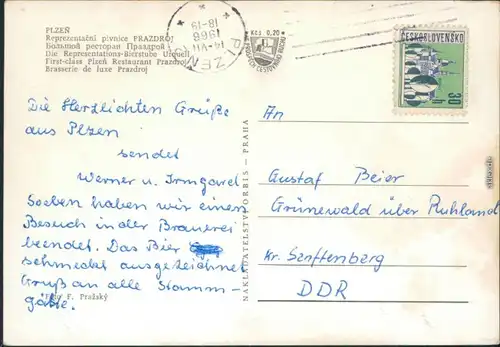 PLZEŇ
Reprezentační pivnice PRAZDROJ
Большой ресторан Праздрой
Die Representations-Bierstube Urquell
First-class Plzeň Restaurant Prazdroj
Brasserie de luxe Prazdroj
14.-VII
1966
18-19
Kčs 0,20
ČESKOSLOVENSKO
30
h
Die Herzlichsten Grüße
aus Plzen
sendet
Werner u. Irmgard
Soeben haben wir einen
Besuch in der Brauerei
beendet. Das Bier
schmeckt ausgezeichnet
Gruß an alle Stamm-
gäste.
Foto F. Pražský
NAKLADATELSTVÍ ORBIS - PRAHA
An
Gustaf Beier
Grünewald über Ruhland
Kr. Senftenberg
DDR